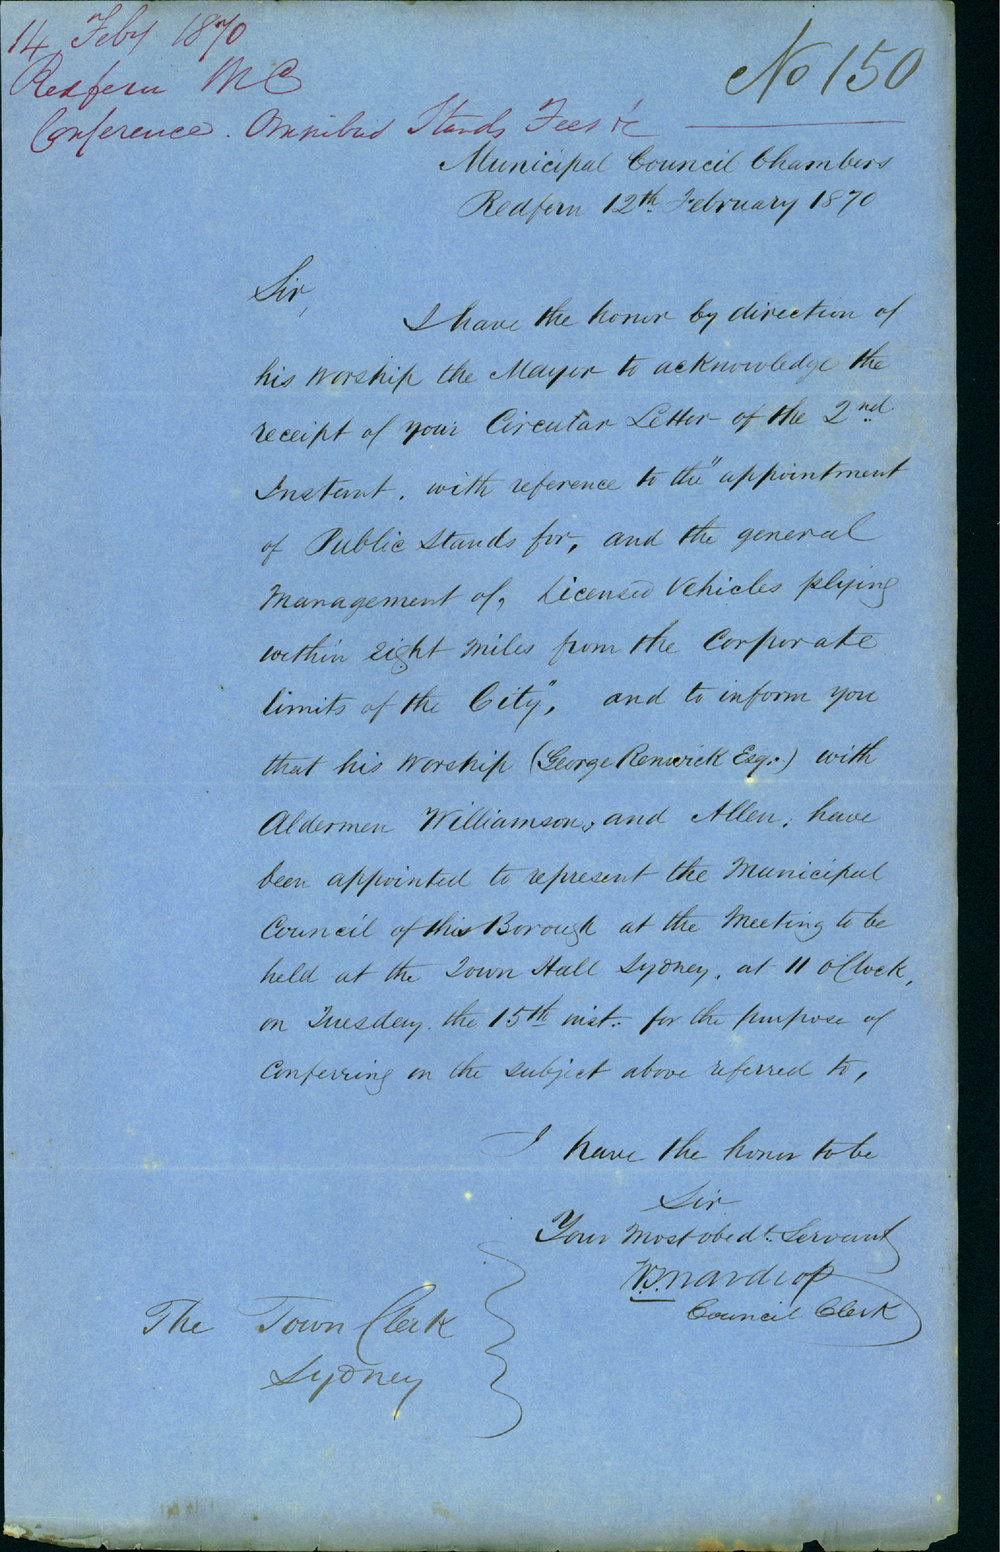 14 Feby 1870
Redfern MC
Conference. Omnibus Stands Fees &c
No 150
Municipal Council Chambers
Redfern 12th. February 1870
Sir,
I have the honor by direction of
his Worship the Mayor to acknowledge the
receipt of your Circular Letter of the 2nd
Instant, with reference to the "appointment
of Public Stands for, and the general
Management of, Licensed Vehicles plying
within eight miles from the Corporate
limits of the City", and to inform you
that his Worship (George Renwick Esq.) with
Aldermen Williamson, and Allen, have
been appointed to represent the Municipal
Council of this Borough at the Meeting to be
held at the Town Hall Sydney, at 11 oClock,
on Tuesday the 15th inst. for the purpose of
Conferring on the subject above referred to,
I have the honor to be
Sir
Your Most obedt. Servant
Council Clerk
The Town Clerk
Sydney